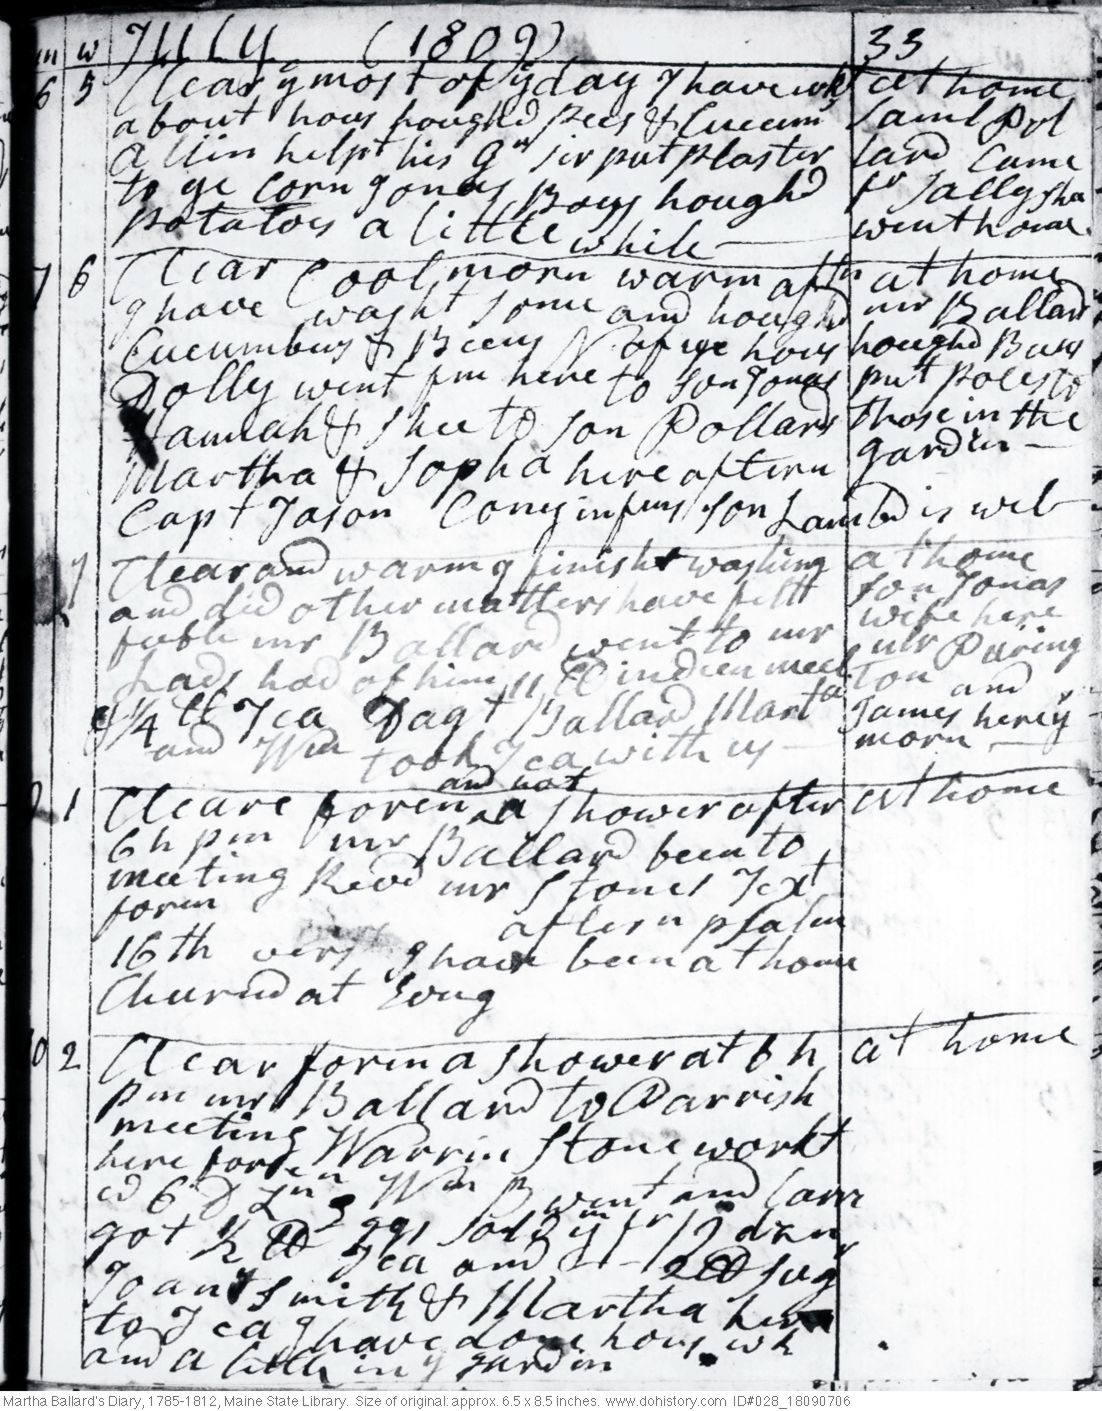 m w July (1809) 33
6 5 Clear y most of ye day I have wkt at home
about hous houghd Pees & Cucum Saml Pol
Allin helpt his Gn sir put plaster lard Came
to ye Corn Jonas Boys houghd fr Sally Sha
Potatoes a little while went home
7 6 Clear Cool morn warm aftn at home
I have washt some and houghd mr Ballard
Cucumbers & Beens N of ye hous houghd Beens
Dolly went fm here to son Jonas put Poles to
Hannah & Shee to son Pollards Those in the
Martha & Sopha here aftern garden
Capt Jason Cony informs son Lambd is well
7 Clear and warm I finisht washing at home
and did other matters have felt son Jonas
feeble mr Ballard went to mr wife here
Lads had of him 11 lb indien meel mr Purington
1/4 lb Tea Dagt Ballard Marta and
and Wm took Tea with us James here y morn
1 Cleare foren and not a shower after at home
6 h pm mr Ballard been to
meeting Revd mr Stones Text
foren aftern psalm
16th vers I have been at home
Churnd at Evng
10 2 Clear foren a shower at 6 h at home
pm mr Ballard to Parrish
meeting Warrin Stone workt
here foren Wm B went and Carr
ed 6 D Eggs sold ym fr 12
got 1/2 lb Tea and 2 lb Sug
Joan Smith & Martha here
to Tea I have done hous wk
and a little in y garden
Martha Ballard's Diary, 1785-1812, Maine State Library. Size of original: approx. 6.5 x 8.5 inches. www.dohistory.com ID#028_18090706